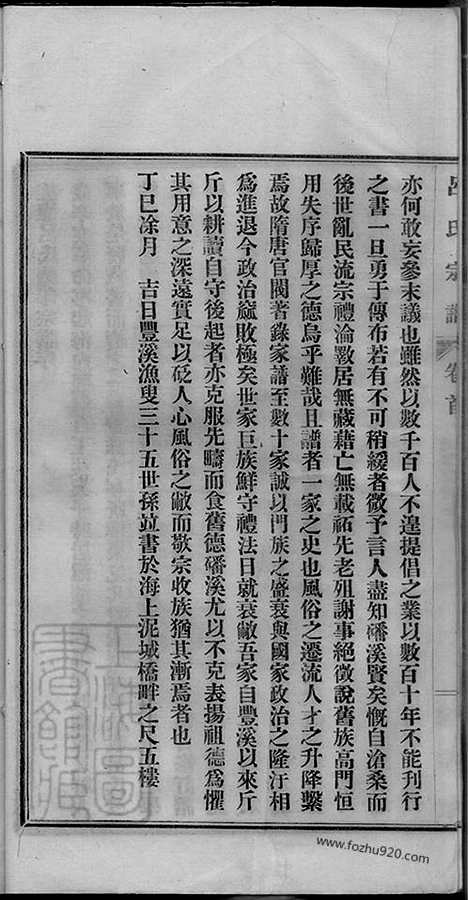 呂氏宗譜 卷首
亦何敢妄參末議也雖然以數千百人不遑提倡之業以數百十年不能刊行
之書一旦勇于傳布若有不可稍緩者微予言人盡知磻溪賢矣慨自滄桑而
後世亂民流宗禮淪斁居無藏藉亡無載祏先老殂謝事絕徵說舊族高門恒
用失序歸厚之德烏乎難哉且譜者一家之史也風俗之遷流人才之升降繫
焉故隋唐官閥著錄家譜至數十家誠以門族之盛衰與國家政治之隆汙相
為進退今政治蔬敗極矣世家巨族鮮守禮法日就衰敝吾家自豐溪以來斤
斤以耕讀自守後起者亦克服先疇而食舊德磻溪尤以不克表揚祖德為懼
其用意之深遠實足以砭人心風俗之敝而敬宗收族猶其漸焉者也
丁巳涂月 吉日豐溪漁叟三十五世孫竝書於海上泥城橋畔之尺五樓
上海圖書館藏
www.fozhu920.com